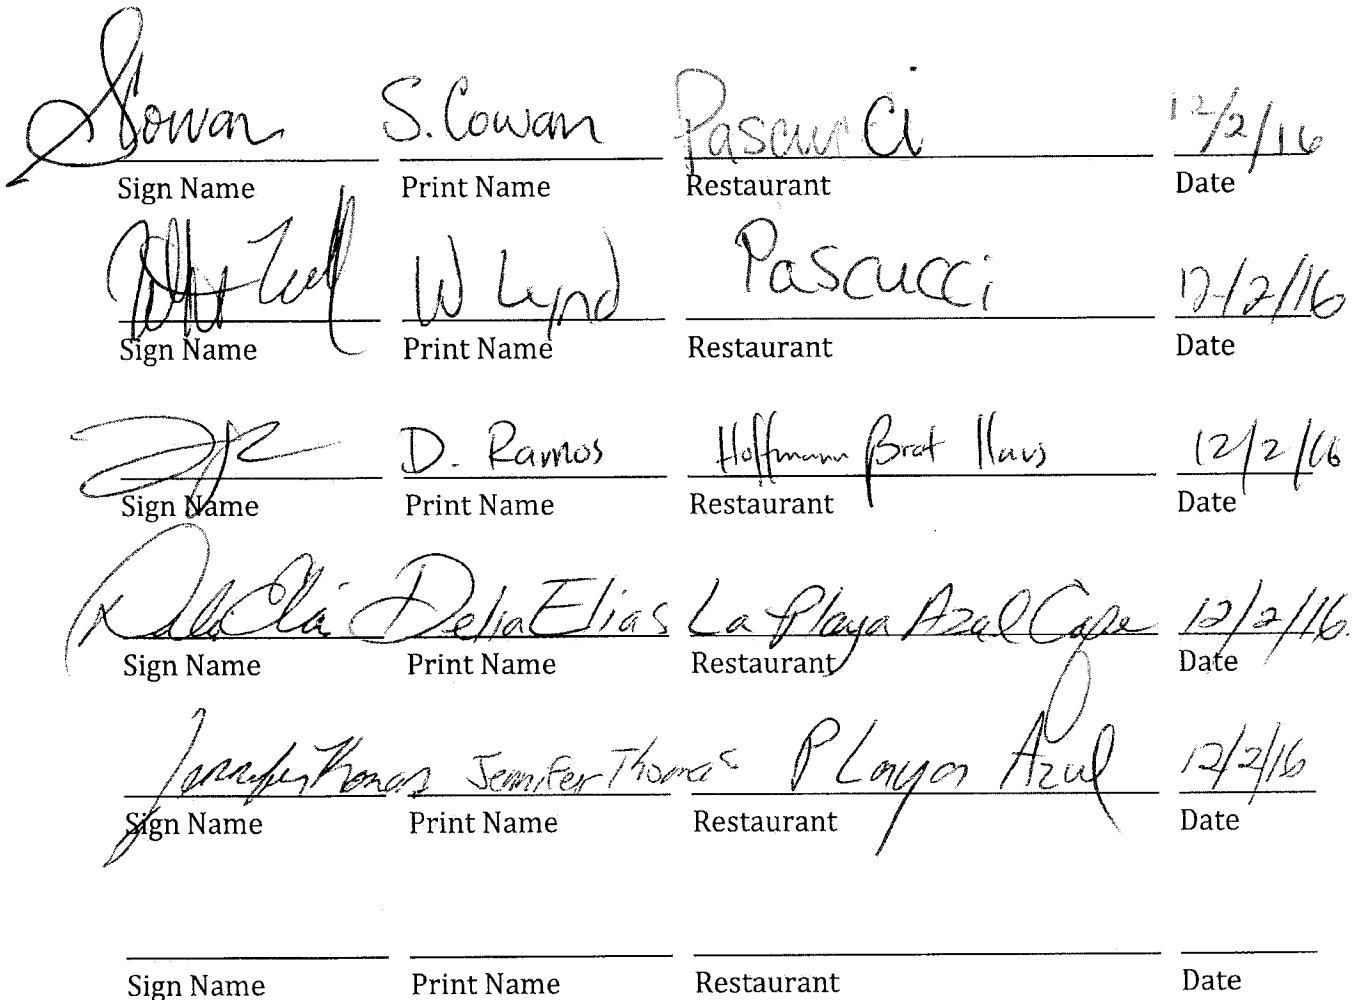 SCowan S. Cowan Pascucci 12/2/16
Sign Name Print Name Restaurant Date
W Lynd Pascucci 12/2/16
Sign Name Print Name Restaurant Date
D. Ramos Hoffmann Brat Haus 12/2/16
Sign Name Print Name Restaurant Date
Delia Elias Delia Elias La Playa Azul Cafe 12/2/16
Sign Name Print Name Restaurant Date
Jennifer Thomas Jennifer Thomas PLaya Azul 12/2/16
Sign Name Print Name Restaurant Date
Sign Name Print Name Restaurant Date